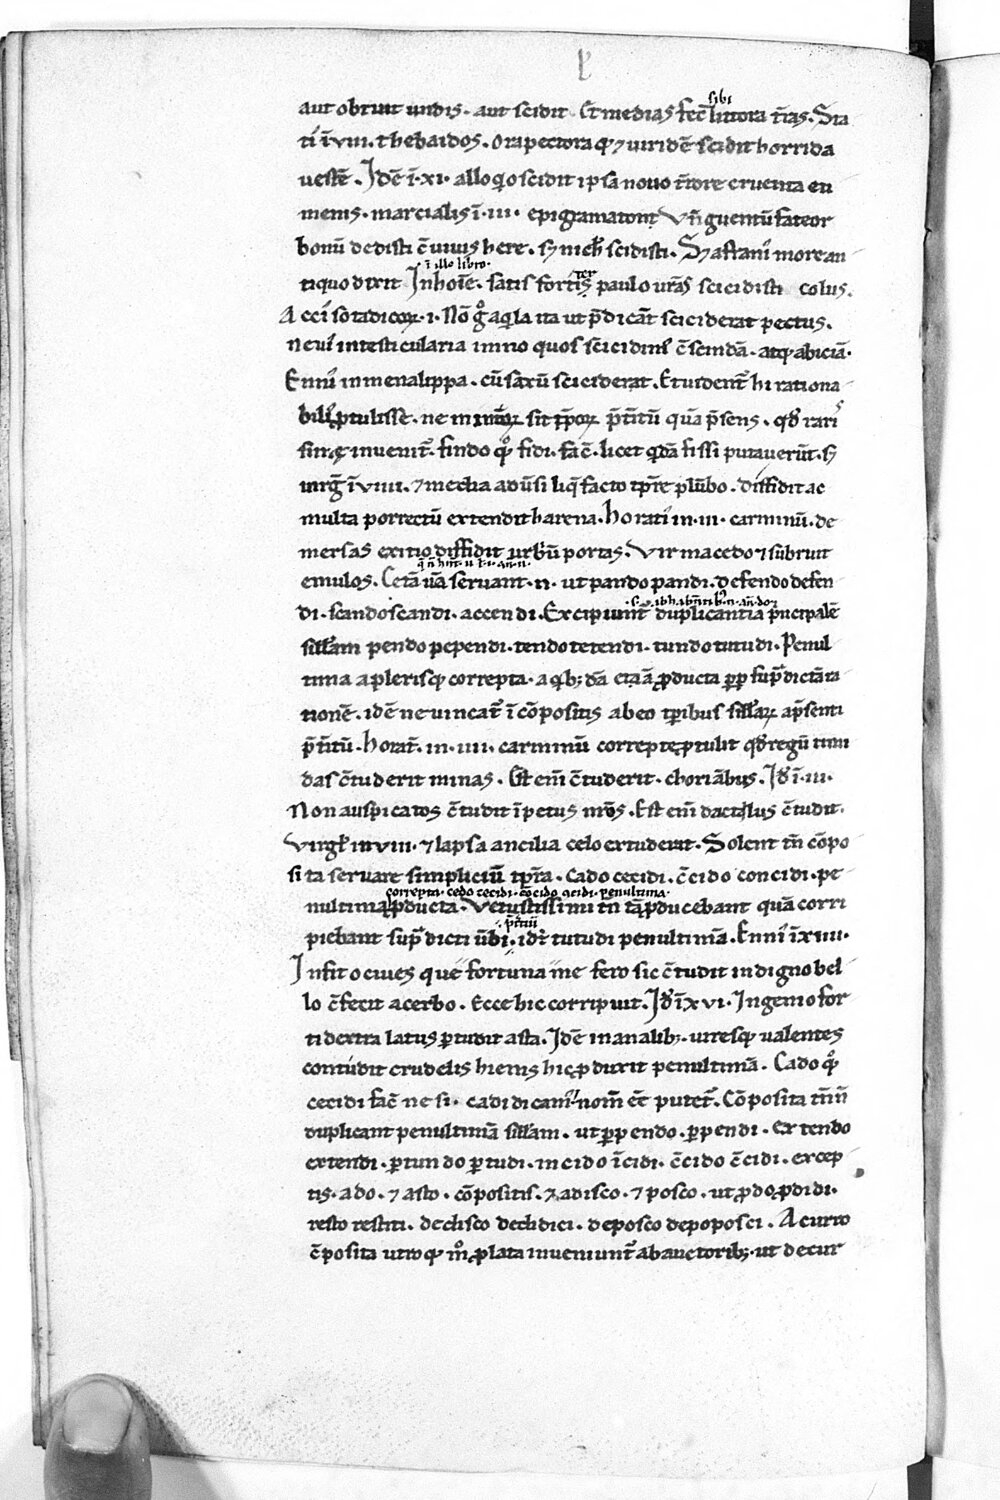 aut obruit undis. aut scidit. Et medias fec̄ littora t̄ras. Sta
sibi
ti' ī viii. thebaidos. ora pectora q; ⁊ uiridē scidit horrida
uestē. Idē ī. xi. alloq̇o scidit ipsa nouo t̄rore cruenta eu
menis. marcialis ī. iii. epigramaton. Vn̄guentū fateor
bonū dedisti c̄uiuis here. s; nich̄ scidisti. S; afrani' more an
ī illo libro.
tiquo dixit In hoīe. satis fortit̄ paulo ur̄as scicidisti colus.
ter
Acci' sotadicoꝝ. i. Nō g̊ aq̇la ita ut p̄dicāt sciciderat pectus.
neui' in testicularia immo quos scicidim' c̄scindā. atq; abiciā.
Enni' in menalippa. cū saxū sciciderat. Et uident̄ hi rationa
bili' ꝓtulisse. ne minoꝝ sit tp̄oꝝ p̄titū quā p̄sens. qd̄ rari'
sim̄ inuenit̄. findo qͦ; fidi. fac̄. licet qdā fissi putauerūt. s;
uirḡ ī viiii. ⁊ media aduersi liq̄facto tp̄re plūbo. diffidit ac
multa porrectū extendit harena. Horati' in. iii. carminū. de
mersas exitio diffidit urbiū portas. Vir macedo ⁊ subruit
emulos. Cet̄a ū a seruant. n. ut pando pandi. defendo defen
di. scando scandi. accendi. Excipiunt̄ duplicantia p̄ncipalē
sill̄am pendo pependi. tendo tetendi. tundo tutudi. Penul
tima a pleris q; correpta. a q̇b; dā etiā ꝓducta ꝓp sup̄dictā ra
tionē. idē ne uincat̄ ī cōpositis ab eo tp̄ibus sill̄aꝝ a p̄senti
p̄titū. Horat̄. in. iiii. carminū correpte ꝓtulit qd̄ regū timi
das c̄tuderit minas. Est em̄ c̄tuderit. choriābus. Id̄ ī. iii.
Non auspicatos c̄tudit īpetus nr̄os. Est em̄ dactilus c̄tudit.
Virgl̄ in viii. ⁊ lapsa ancilia celo extuderat. Solent tn̄ cōpo
sita seruare simpliciū tp̄ra. Cado cecidi. c̄cido concidi. pe
correpta. cedo cecidi. c̄cido cidi. penultima.
nultima ꝓducta. Vetustissimi tn̄ tā ꝓducebant quā corri
p̄titū
piebant sup̄dicti ūbi. id̄ tutudi penultimā. Enni' ī xiiii.
Infit o ciues que fortuna me fero sic c̄tudit indigno bel
lo c̄fecit acerbo. Ecce hic corripuit. Id̄ ī xvi. Ingenio for
ti dextra latus ꝑtudit asta. Idē in analib;. uiresq; ualentes
contudit crudelis hiems hic ꝓduxit penultimā. Cado qͦ;
cecidi fac̄ ne si. cadi dicam' nom̄ eē putet̄. Cōposita tn̄ n̄
duplicant penultimā sill̄am. ut ꝑpendo. ꝑpendi. extendo
extendi. ꝑtundo ꝑtudi. incido īcidi. c̄cido c̄cidi. excep
tis. a do. ⁊ a sto. cōpositis. ⁊ a disco. ⁊ posco. ut ꝓdo ꝓdidi.
resto restiti. dedisco dedidici. deposco depoposci. A curro
c̄posita utroq; mͦ ꝓlata inueniunt̄ ab auctorib;. ut decur